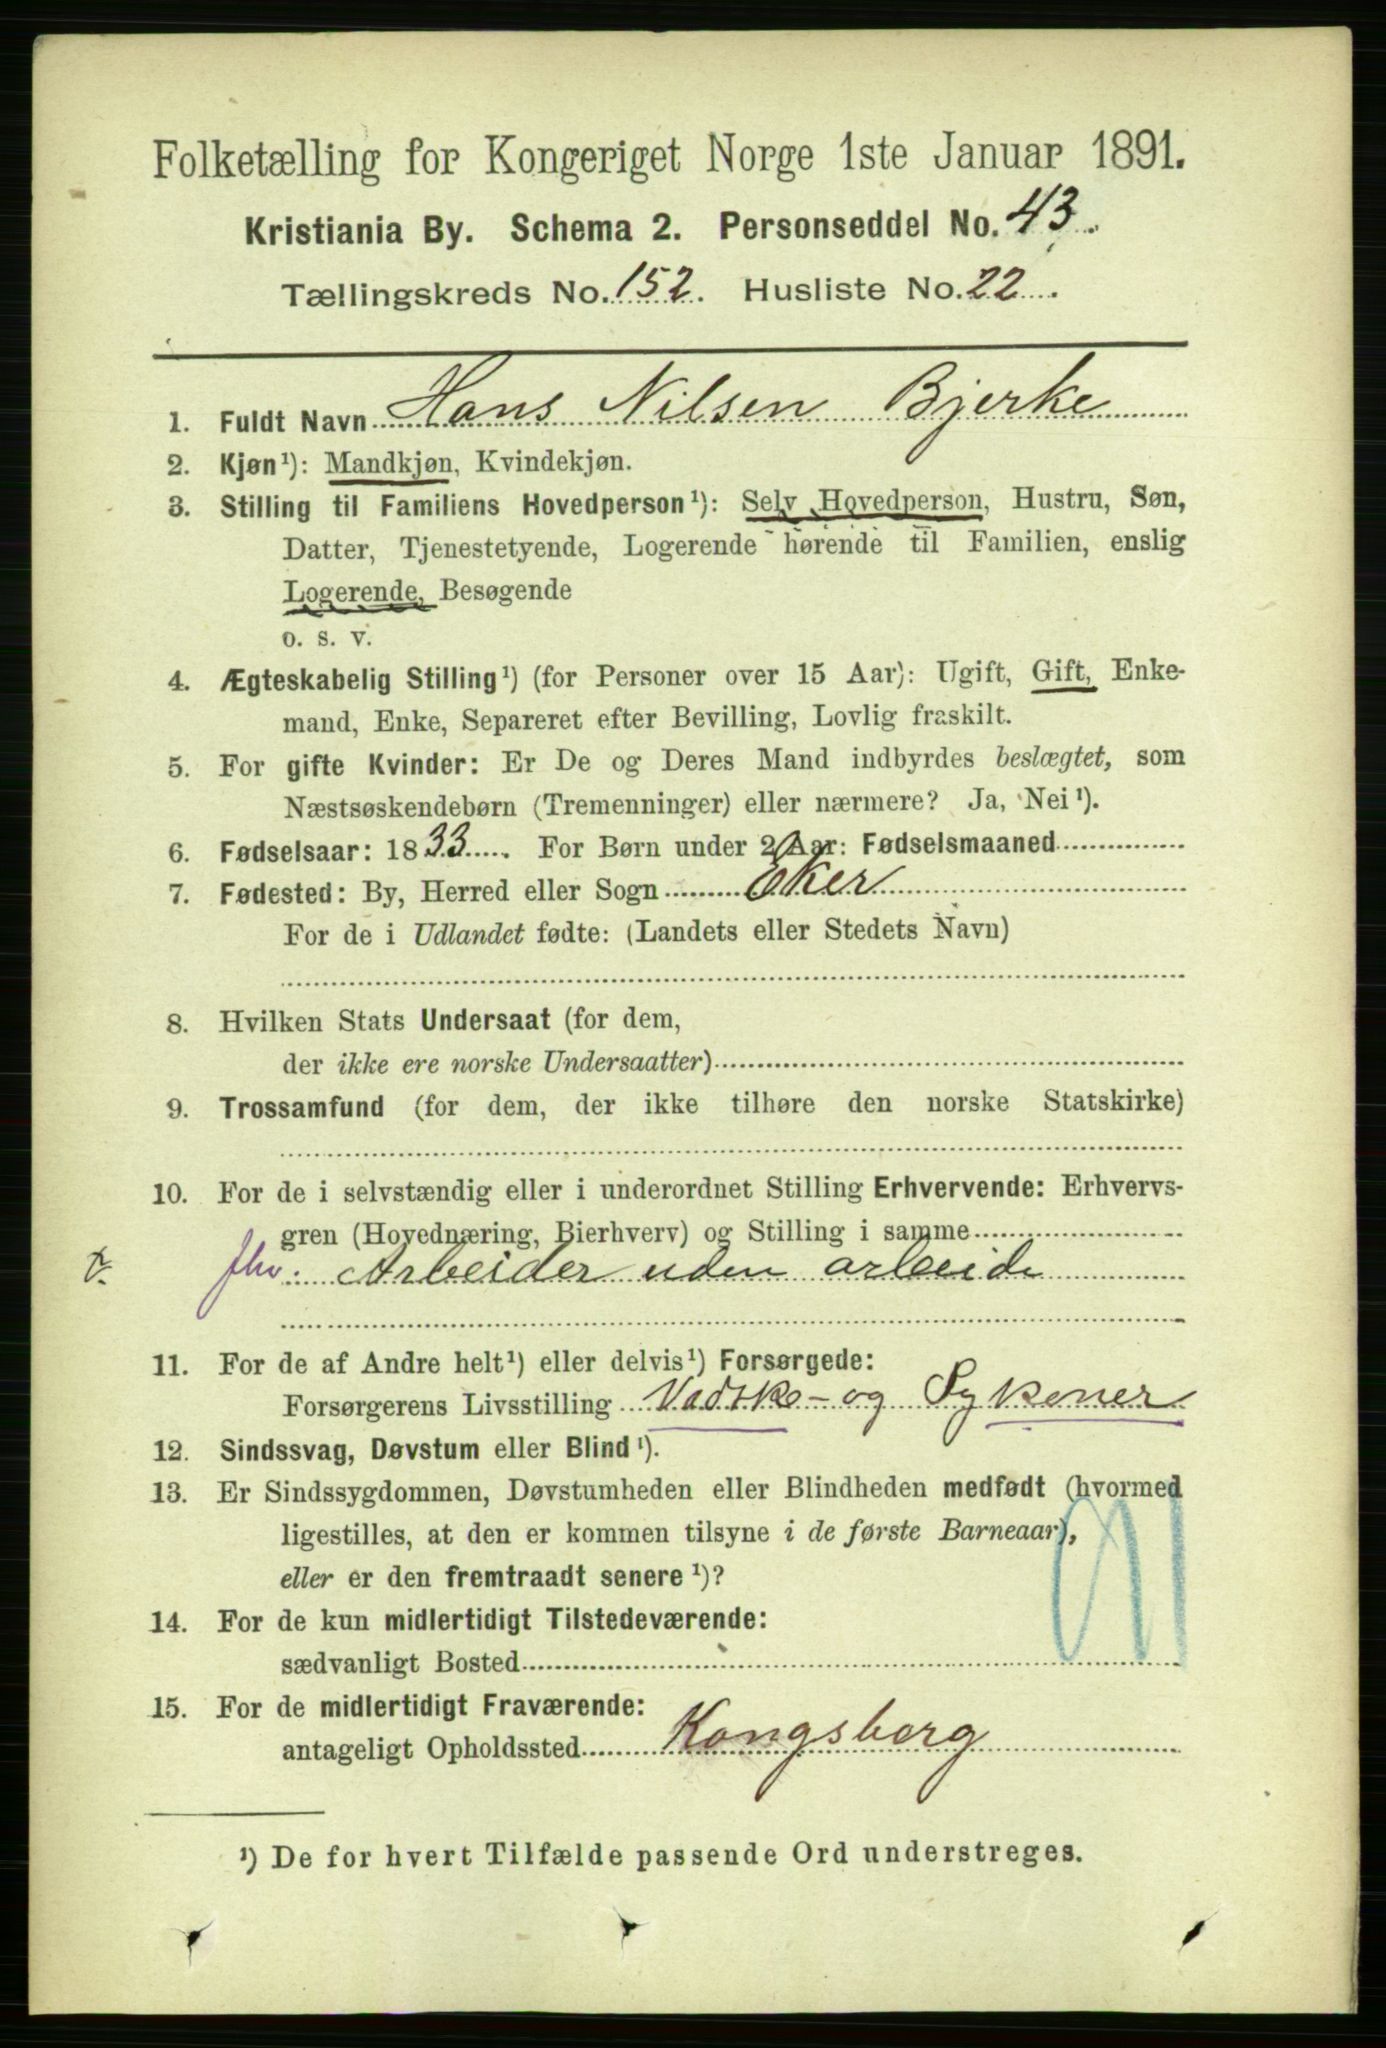 Folketælling for Kongeriget Norge 1ste Januar 1891.
Kristiania By. Schema 2. Personseddel No. 43.
Tællingskreds No. 152. Husliste No. 22.
1. Fuldt Navn Hans Nilsen Bjerke
2. Kjøn¹): Mandkjøn, Kvindekjøn.
3. Stilling til Familiens Hovedperson¹): Selv Hovedperson, Hustru, Søn,
Datter, Tjenestetyende, Logerende hørende til Familien, enslig
Logerende, Besøgende
o. s. v.
4. Ægteskabelig Stilling¹) (for Personer over 15 Aar): Ugift, Gift, Enke-
mand, Enke, Separeret efter Bevilling, Lovlig fraskilt.
5. For gifte Kvinder: Er De og Deres Mand indbyrdes beslægtet, som
Næstsøskendebørn (Tremenninger) eller nærmere? Ja, Nei¹).
6. Fødselsaar: 1833. For Børn under 2 Aar: Fødselsmaaned
7. Fødested: By, Herred eller Sogn Eker
For de i Udlandet fødte: (Landets eller Stedets Navn)
8. Hvilken Stats Undersaat (for dem,
der ikke ere norske Undersaatter)
9. Trossamfund (for dem, der ikke tilhøre den norske Statskirke)
10. For de i selvstændig eller i underordnet Stilling Erhvervende: Erhvervs-
gren (Hovednæring, Bierhverv) og Stilling i samme
fhv. Arbeider uden arbeide
11. For de af Andre helt¹) eller delvis¹) Forsørgede:
Forsørgerens Livsstilling Vadske- og Sykoner
12. Sindssvag, Døvstum eller Blind¹).
13. Er Sindssygdommen, Døvstumheden eller Blindheden medfødt (hvormed
ligestilles, at den er kommen tilsyne i de første Barneaar),
eller er den fremtraadt senere¹)?
14. For de kun midlertidigt Tilstedeværende:
sædvanligt Bosted
15. For de midlertidigt Fraværende:
antageligt Opholdssted Kongsberg
¹) De for hvert Tilfælde passende Ord understreges.